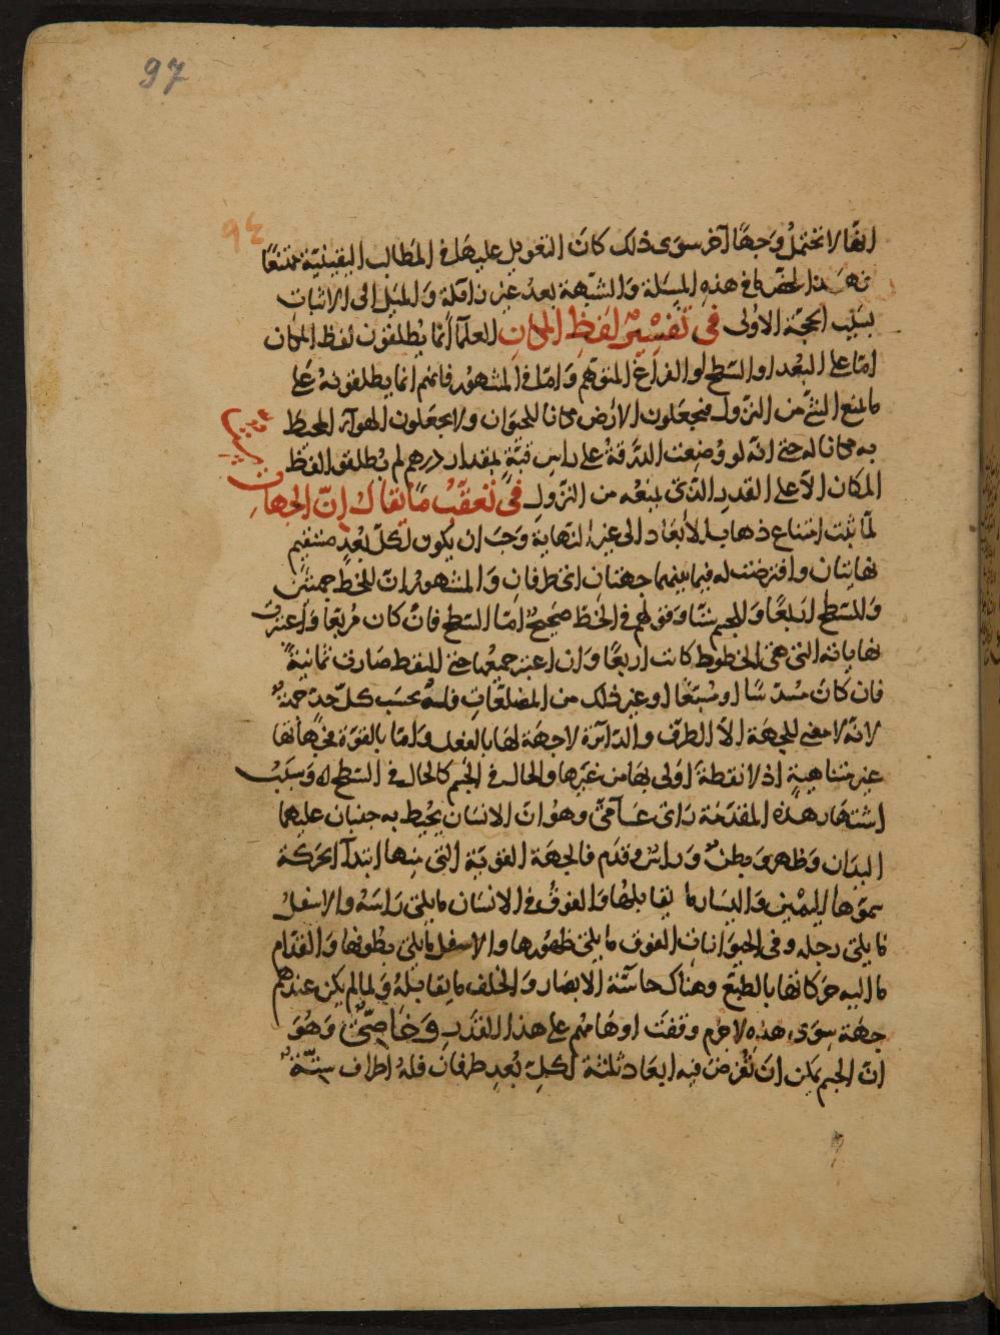 97
٩٤
انها لا تحتمل وجها آخر سوى ذلك كان التعويل عليها فى المطالب اليقينية ممتنعا
فى هذه المسئلة والشبهة بعد غير زائلة والميل الى الاثبات
بسبب الحجة الاولى فى تفسير لفظ المكان العلماء انما يطلقون لفظ المكان
اما على البعد او السطح او الفراغ المتوهم واما فى المشهور فانهم انما يطلقونه على
ما يمنع الشئ من النزول فيجعلون الارض مكانا للحيوان ولا يجعلون الهواء المحيط
به مكانا له حتى انه لو وضعت الدرقة على راس قبة بمقدار درهم لم يطلقوا لفظ
المكان الا على القدر الذى يمنعه من النزول فى تعقب ما يقال ان الجهات
لما ثبت امتناع ذهاب الابعاد الى غير النهاية وجب ان يكون لكل بعد مستقيم
نهايتان وافترضت له فيما بينهما جهتان اى طرفان والمشهور ان للخط جهتين
وللسطح اربعا وللجسم ستا وقولهم فى الخط صحيح اما السطح فان كان مربعا واعتبرت
نهاياته التى هى الخطوط كانت اربعا وان اعتبر جميعها حتى للنقط صارت ثمانية
فان كان مسدسا او مسبعا او غير ذلك من المضلعات فله بحسب كل حد جهة
لانه لا معنى للجهة الا الطرف والدائرة لا جهة لها بالفعل واما بالقوة فجهاتها
غير متناهية اذ لا نقطة اولى بها من غيرها والحال فى الجسم كالحال فى السطح له وسبب
اشتهار هذه المقدمة راى عامى وهو ان الانسان يحيط به جنبان عليهما
اليدان وظهر وبطن وراس وقدم فالجهة القوية التى منها ابتداء الحركة
سموها اليمين واليسار ما يقابلها والفوق فى الانسان ما يلى راسه والاسفل
ما يلى رجله وفى الحيوانات الفوق ما يلى ظهورها والاسفل ما يلى بطونها والقدام
ما اليه حركاتها بالطبع وهناك حاسة الابصار والخلف ما يقابله ولما لم يكن عندهم
جهة سوى هذه لا جرم وقفت اوهامهم على هذا القدر وخاصى وهو
ان الجسم يمكن ان تفرض فيه ابعاد ثلثة لكل بعد طرفان فله اطراف ستة